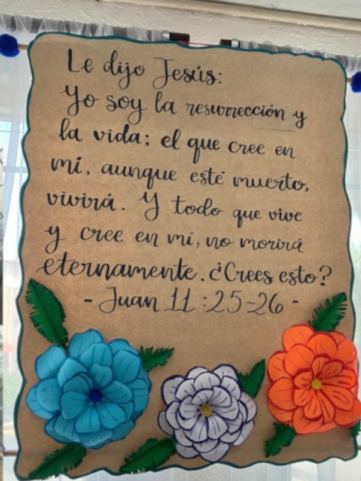 Le dijo Jesús:
Yo soy la resurrección y
la vida; el que cree en
mí, aunque esté muerto,
vivirá. Y todo que vive
y cree en mí, no morirá
eternamente. ¿Crees esto?
- Juan 11:25-26 -